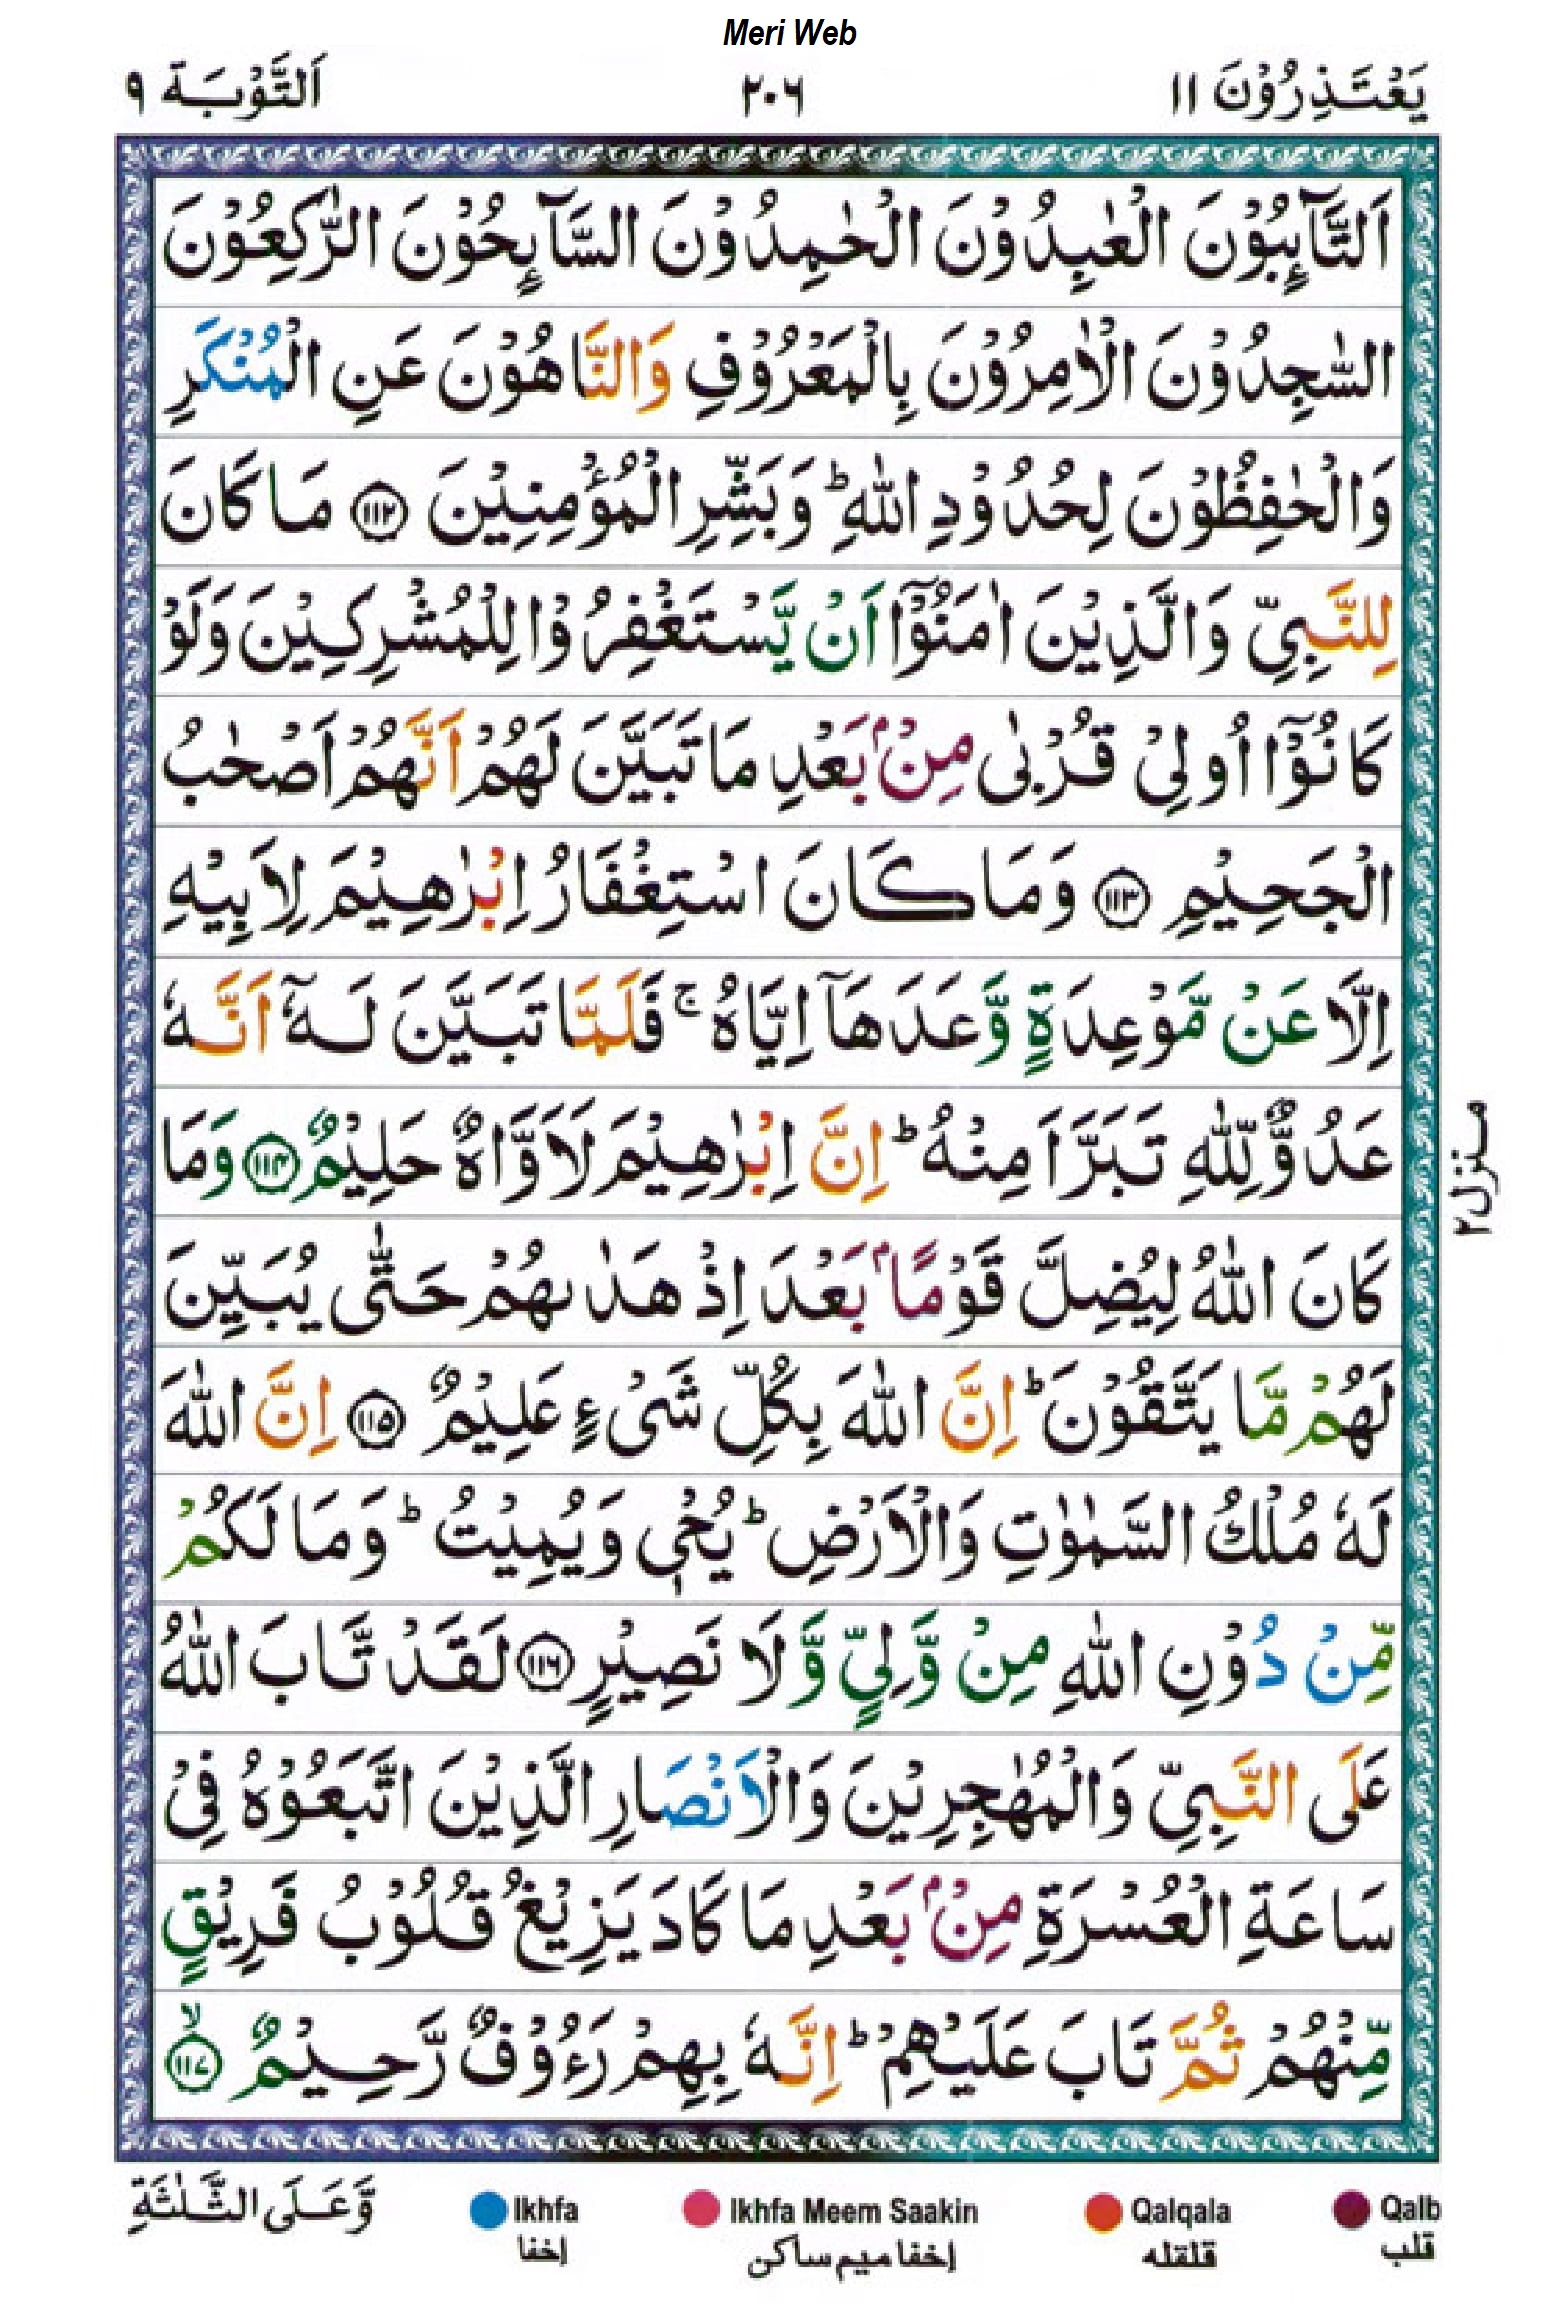 Meri Web
يَعْتَذِرُوْنَ ١١ ٢٠٦ اَلتَّوْبَة ٩
اَلتَّآىِٕبُوْنَ الْعٰبِدُوْنَ الْحٰمِدُوْنَ السَّآىِٕحُوْنَ الرّٰكِعُوْنَ
السّٰجِدُوْنَ الْاٰمِرُوْنَ بِالْمَعْرُوْفِ وَالنَّاهُوْنَ عَنِ الْمُنْكَرِ
وَالْحٰفِظُوْنَ لِحُدُوْدِ اللّٰهِ ؕ وَبَشِّرِ الْمُؤْمِنِيْنَ ﴿١١٢﴾ مَا كَانَ
لِلنَّبِىِّ وَالَّذِيْنَ اٰمَنُوْۤا اَنْ يَّسْتَغْفِرُوْا لِلْمُشْرِكِيْنَ وَلَوْ
كَانُوْۤا اُولِىْ قُرْبٰى مِنْۢ بَعْدِ مَا تَبَيَّنَ لَهُمْ اَنَّهُمْ اَصْحٰبُ
الْجَحِيْمِ ﴿١١٣﴾ وَمَا كَانَ اسْتِغْفَارُ اِبْرٰهِيْمَ لِاَبِيْهِ
اِلَّا عَنْ مَّوْعِدَةٍ وَّعَدَهَاۤ اِيَّاهُ ۚ فَلَمَّا تَبَيَّنَ لَهٗۤ اَنَّهٗ
عَدُوٌّ لِّلّٰهِ تَبَرَّاَ مِنْهُ ؕ اِنَّ اِبْرٰهِيْمَ لَاَوَّاهٌ حَلِيْمٌ ﴿١١٤﴾ وَمَا
كَانَ اللّٰهُ لِيُضِلَّ قَوْمًۢا بَعْدَ اِذْ هَدٰىهُمْ حَتّٰى يُبَيِّنَ
لَهُمْ مَّا يَتَّقُوْنَ ؕ اِنَّ اللّٰهَ بِكُلِّ شَىْءٍ عَلِيْمٌ ﴿١١٥﴾ اِنَّ اللّٰهَ
لَهٗ مُلْكُ السَّمٰوٰتِ وَالْاَرْضِ ؕ يُحْىٖ وَيُمِيْتُ ؕ وَمَا لَكُمْ
مِّنْ دُوْنِ اللّٰهِ مِنْ وَّلِىٍّ وَّلَا نَصِيْرٍ ﴿١١٦﴾ لَقَدْ تَّابَ اللّٰهُ
عَلَى النَّبِىِّ وَالْمُهٰجِرِيْنَ وَالْاَنْصَارِ الَّذِيْنَ اتَّبَعُوْهُ فِىْ
سَاعَةِ الْعُسْرَةِ مِنْۢ بَعْدِ مَا كَادَ يَزِيْغُ قُلُوْبُ فَرِيْقٍ
مِّنْهُمْ ثُمَّ تَابَ عَلَيْهِمْ ؕ اِنَّهٗ بِهِمْ رَءُوْفٌ رَّحِيْمٌ ﴿١١٧﴾ ۙ
منزل٢
وَّعَلَى الثَّلٰثَةِ
Ikhfa Ikhfa Meem Saakin Qalqala Qalb
إخفا إخفا ميم ساكن قلقله قلب